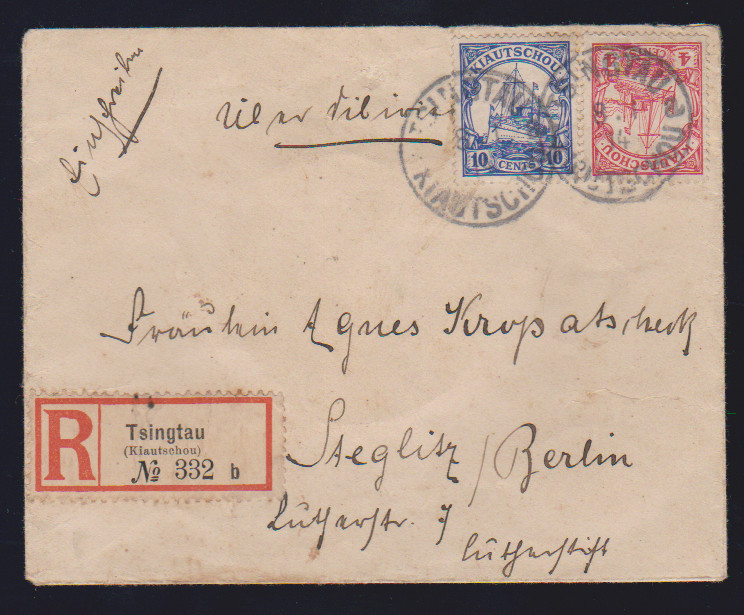 Einschreiben
über Sibirien
KIAUTSCHOU
10 CENTS 10
4 CENTS 4
KIAUTSCHOU
TSINGTAU
KIAUTSCHOU
Fräulein Agnes Kropatscheck
R
Tsingtau
(Kiautschou)
№ 332 b
Steglitz/Berlin
Lutherstr. 7